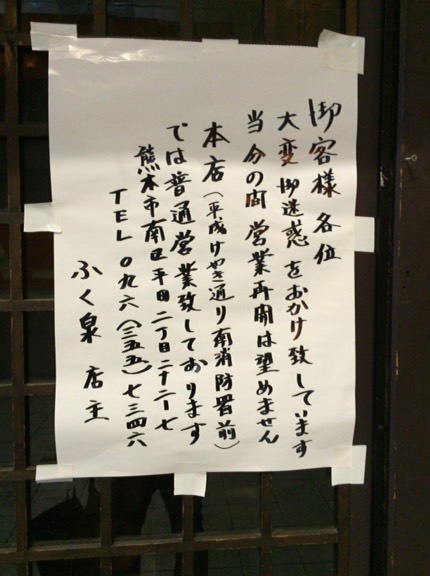 御客様各位
大変御迷惑をおかけ致しています
当分の間営業再開は望めません
本店(平成けやき通り南消防署前)
では普通営業致しております
熊本市南区平田二丁目二十二ー七
TEL〇九六(三五五)七三四六
ふく泉 店主